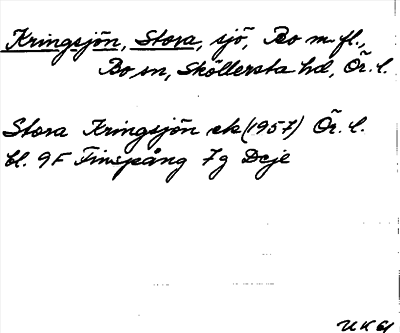 Kringsjön, Stora, sjö, Bo m. fl.,
Bo sn, Sköllersta hd, Ör. l.
Stora Kringsjön ek (1957) Ör. l.
bl. 9F Finspång 7g Dcje
UK 61